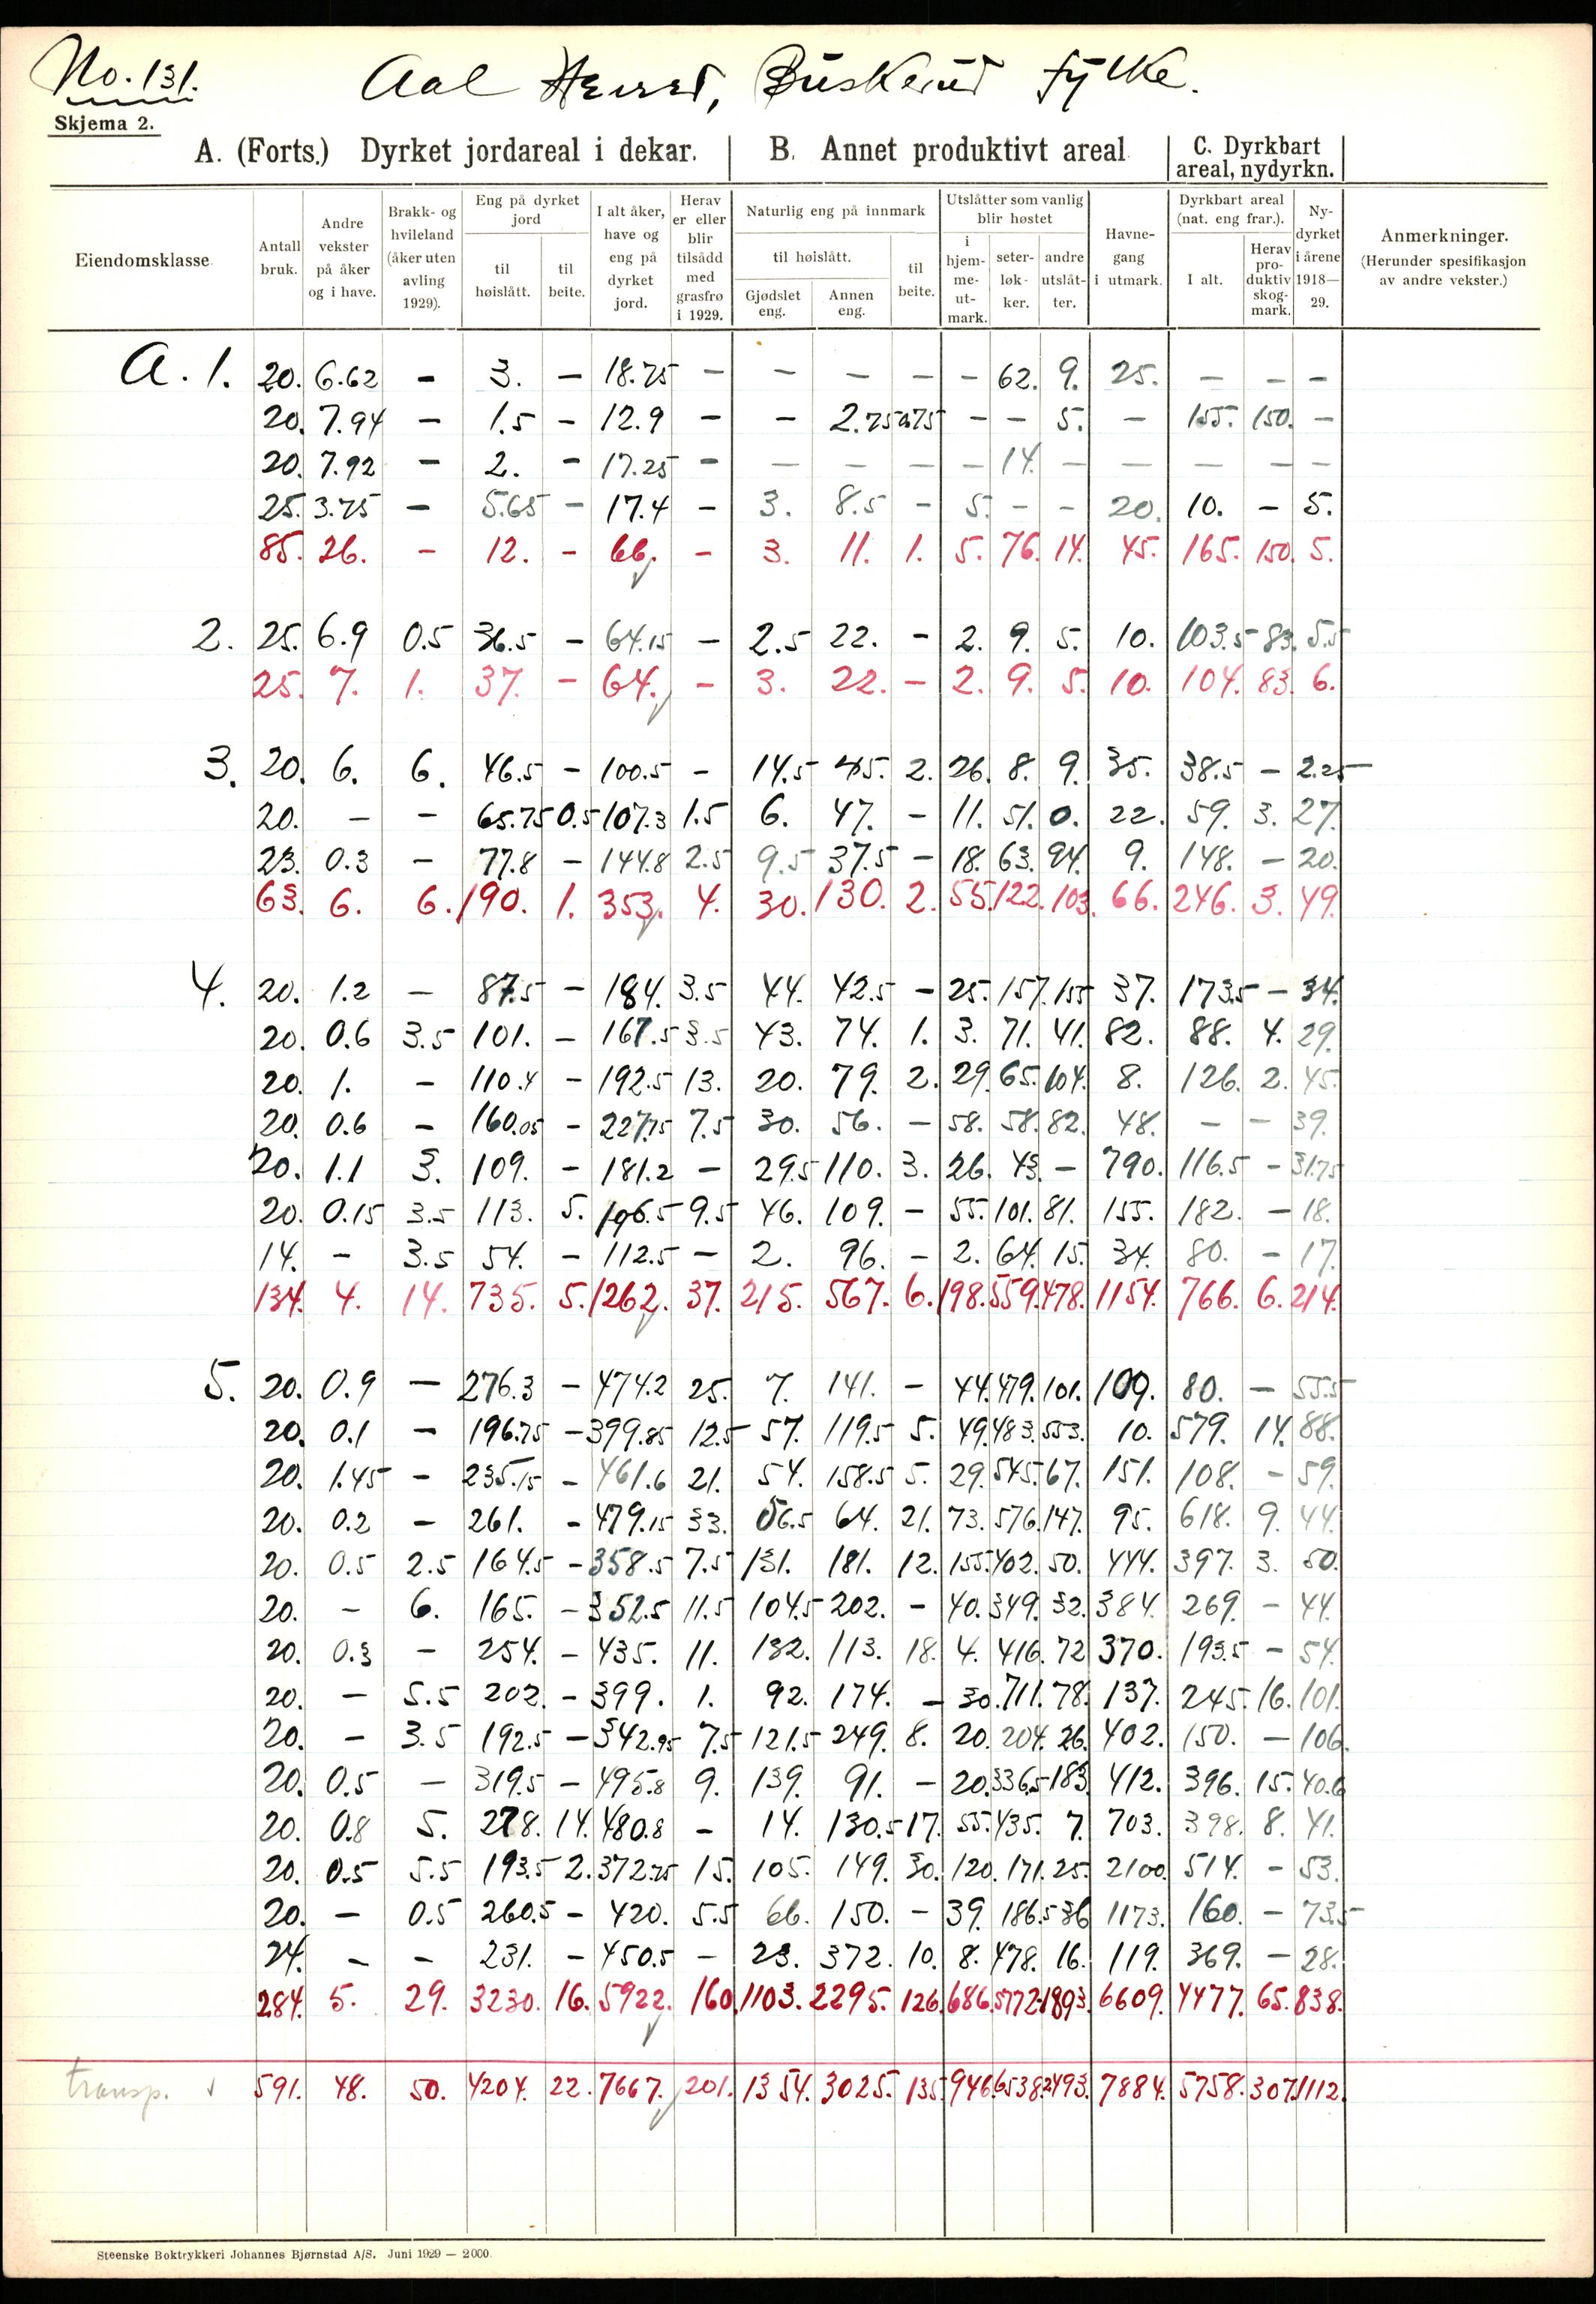 No. 131.
Aal Herred, Buskerud fylke.
Skjema 2.
A. (Forts.) Dyrket jordareal i dekar.
B. Annet produktivt areal
C. Dyrkbart areal, nydyrkn.
Eiendomsklasse.
Antall bruk.
Andre vekster på åker og i have.
Brakk- og hvileland (åker uten avling 1929).
Eng på dyrket jord
til høislått.
til beite.
I alt åker, have og eng på dyrket jord.
Herav er eller blir tilsådd med grasfrø i 1929.
Naturlig eng på innmark
til høislått.
Gjødslet eng.
Annen eng.
til beite.
Utslåtter som vanlig blir høstet
i hjemme-ut-mark.
seter-løk-ker.
andre utslåt-ter.
Havne-gang i utmark.
Dyrkbart areal (nat. eng frar.).
I alt.
Herav pro-duktiv skog-mark.
Ny-dyrket i årene 1918—29.
Anmerkninger.
(Herunder spesifikasjon av andre vekster.)
A. 1. 20. 6.62 - 3. - 18.75 - - - - - 62. 9. 25. - - -
20. 7.94 - 1.5 - 12.9 - - 2.75 0.75 - - 5. - 155. 150. -
20. 7.92 - 2. - 17.25 - - - - - 14. - - - - -
25. 3.75 - 5.65 - 17.4 - 3. 8.5 - 5. - - 20. 10. - 5.
85. 26. - 12. - 66. - 3. 11. 1. 5. 76. 14. 45. 165. 150. 5.
2. 25. 6.9 0.5 36.5 - 64.15 - 2.5 22. - 2. 9. 5. 10. 103.5 83. 5.5
25. 7. 1. 37. - 64. - 3. 22. - 2. 9. 5. 10. 104. 83. 6.
3. 20. 6. 6. 46.5 - 100.5 - 14.5 45. 2. 26. 8. 9. 35. 38.5 - 2.25
20. - - 65.75 0.5 107.3 1.5 6. 47. - 11. 51. 0. 22. 59. 3. 27.
23. 0.3 - 77.8 - 144.8 2.5 9.5 37.5 - 18. 63. 94. 9. 148. - 20.
63. 6. 6. 190. 1. 353. 4. 30. 130. 2. 55. 122. 103. 66. 246. 3. 49.
4. 20. 1.2 - 87.5 - 184. 3.5 44. 42.5 - 25. 157. 155 37. 173.5 - 34.
20. 0.6 3.5 101. - 167.5 3.5 43. 74. 1. 3. 71. 41. 82. 88. 4. 29.
20. 1. - 110.4 - 192.5 13. 20. 79. 2. 29. 65. 104. 8. 126. 2. 45.
20. 0.6 - 160.05 - 227.75 7.5 30. 56. - 58. 58. 82. 48. - - 39.
20. 1.1 3. 109. - 181.2 - 29.5 110. 3. 26. 43. - 790. 116.5 - 31.75
20. 0.15 3.5 113. 5. 196.5 9.5 46. 109. - 55. 101. 81. 155. 182. - 18.
14. - 3.5 54. - 112.5 - 2. 96. - 2. 64. 15. 34. 80. - 17.
134. 4. 14. 735. 5. 1262. 37. 215. 567. 6. 198. 559. 478. 1154. 766. 6. 214.
5. 20. 0.9 - 276.3 - 474.2 25. 7. 141. - 44. 479. 101. 109. 80. - 55.5
20. 0.1 - 196.75 - 399.85 12.5 57. 119.5 5. 49. 483. 553. 10. 579. 14. 88.
20. 1.45 - 235.15 - 461.6 21. 54. 158.5 5. 29. 545. 67. 151. 108. - 59.
20. 0.2 - 261. - 479.15 33. 56.5 64. 21. 73. 576. 147. 95. 618. 9. 44.
20. 0.5 2.5 164.5 - 358.5 7.5 131. 181. 12. 155. 402. 50. 444. 397. 3. 50.
20. - 6. 165. - 352.5 11.5 104.5 202. - 40. 349. 32. 384. 269. - 44.
20. 0.3 - 254. - 435. 11. 132. 113. 18. 4. 416. 72 370. 193.5 - 54.
20. - 5.5 202. - 399. 1. 92. 174. - 30. 711. 78. 137. 245. 16. 101.
20. - 3.5 192.5 - 342.95 7.5 121.5 249. 8. 20. 204. 26. 402. 150. - 106.
20. 0.5 - 319.5 - 495.8 9. 139. 91. - 20. 336.5 183. 412. 396. 15. 40.6
20. 0.8 5. 278. 14. 480.8 - 14. 130.5 17. 55. 435. 7. 703. 398. 8. 41.
20. 0.5 5.5 193.5 2. 372.75 15. 105. 149. 30. 120. 171. 25. 2100. 514. - 53.
20. - 0.5 260.5 - 420. 5.5 66. 150. - 39. 186.5 36 1173. 160. - 73.5
24. - - 231. - 450.5 - 23. 372. 10. 8. 478. 16. 119. 369. - 28.
284. 5. 29. 3230. 16. 5922. 160. 1103. 2295. 126. 686. 5772. 1893. 6609. 4477. 65. 838.
transp. 591. 48. 50. 4204. 22. 7667. 201. 1354. 3025. 135. 946. 6538. 2493. 7884. 5758. 307. 1112.
Steenske Boktrykkeri Johannes Bjørnstad A/S. Juni 1929 — 2000.